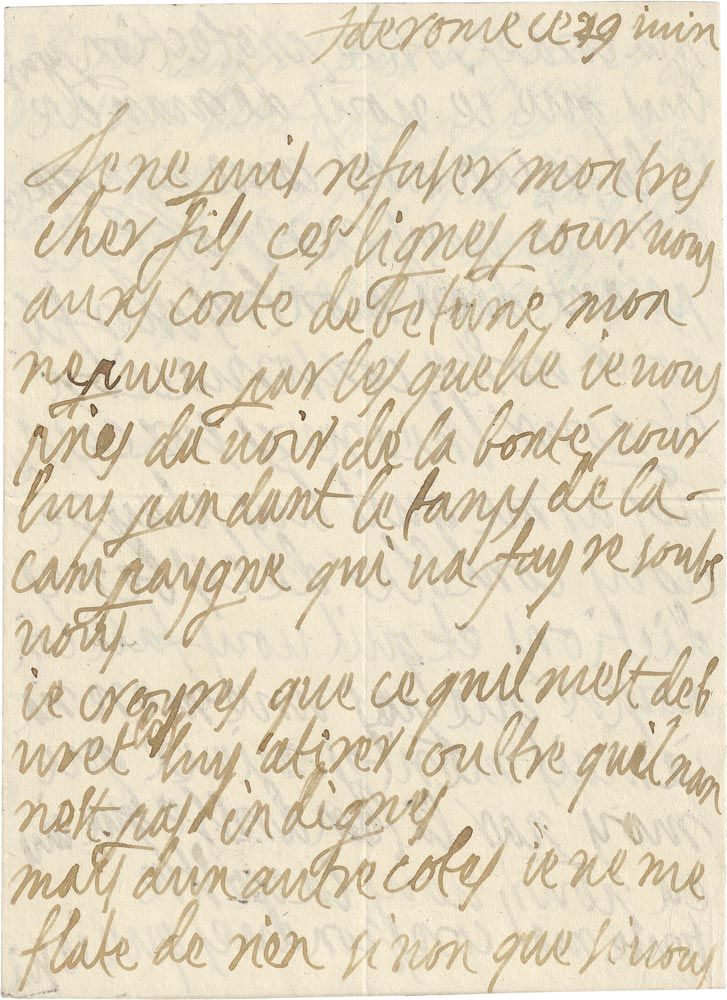 de rome ce 29 iuin
Je ne puis refuser mon tres
cher fils ces lignes pour vous
au conte de betune mon
nepveu par les quelle ie vous
pries da voir de la bonté pour
luy pandant le tamps de la
campaygne qui va fayre soubs
vous
ie croyres que ce quil mest de
luy atirer oultre quil nan
nest pas indignes
mais dun autre cotes ie ne me
flate de rien si non que si vous